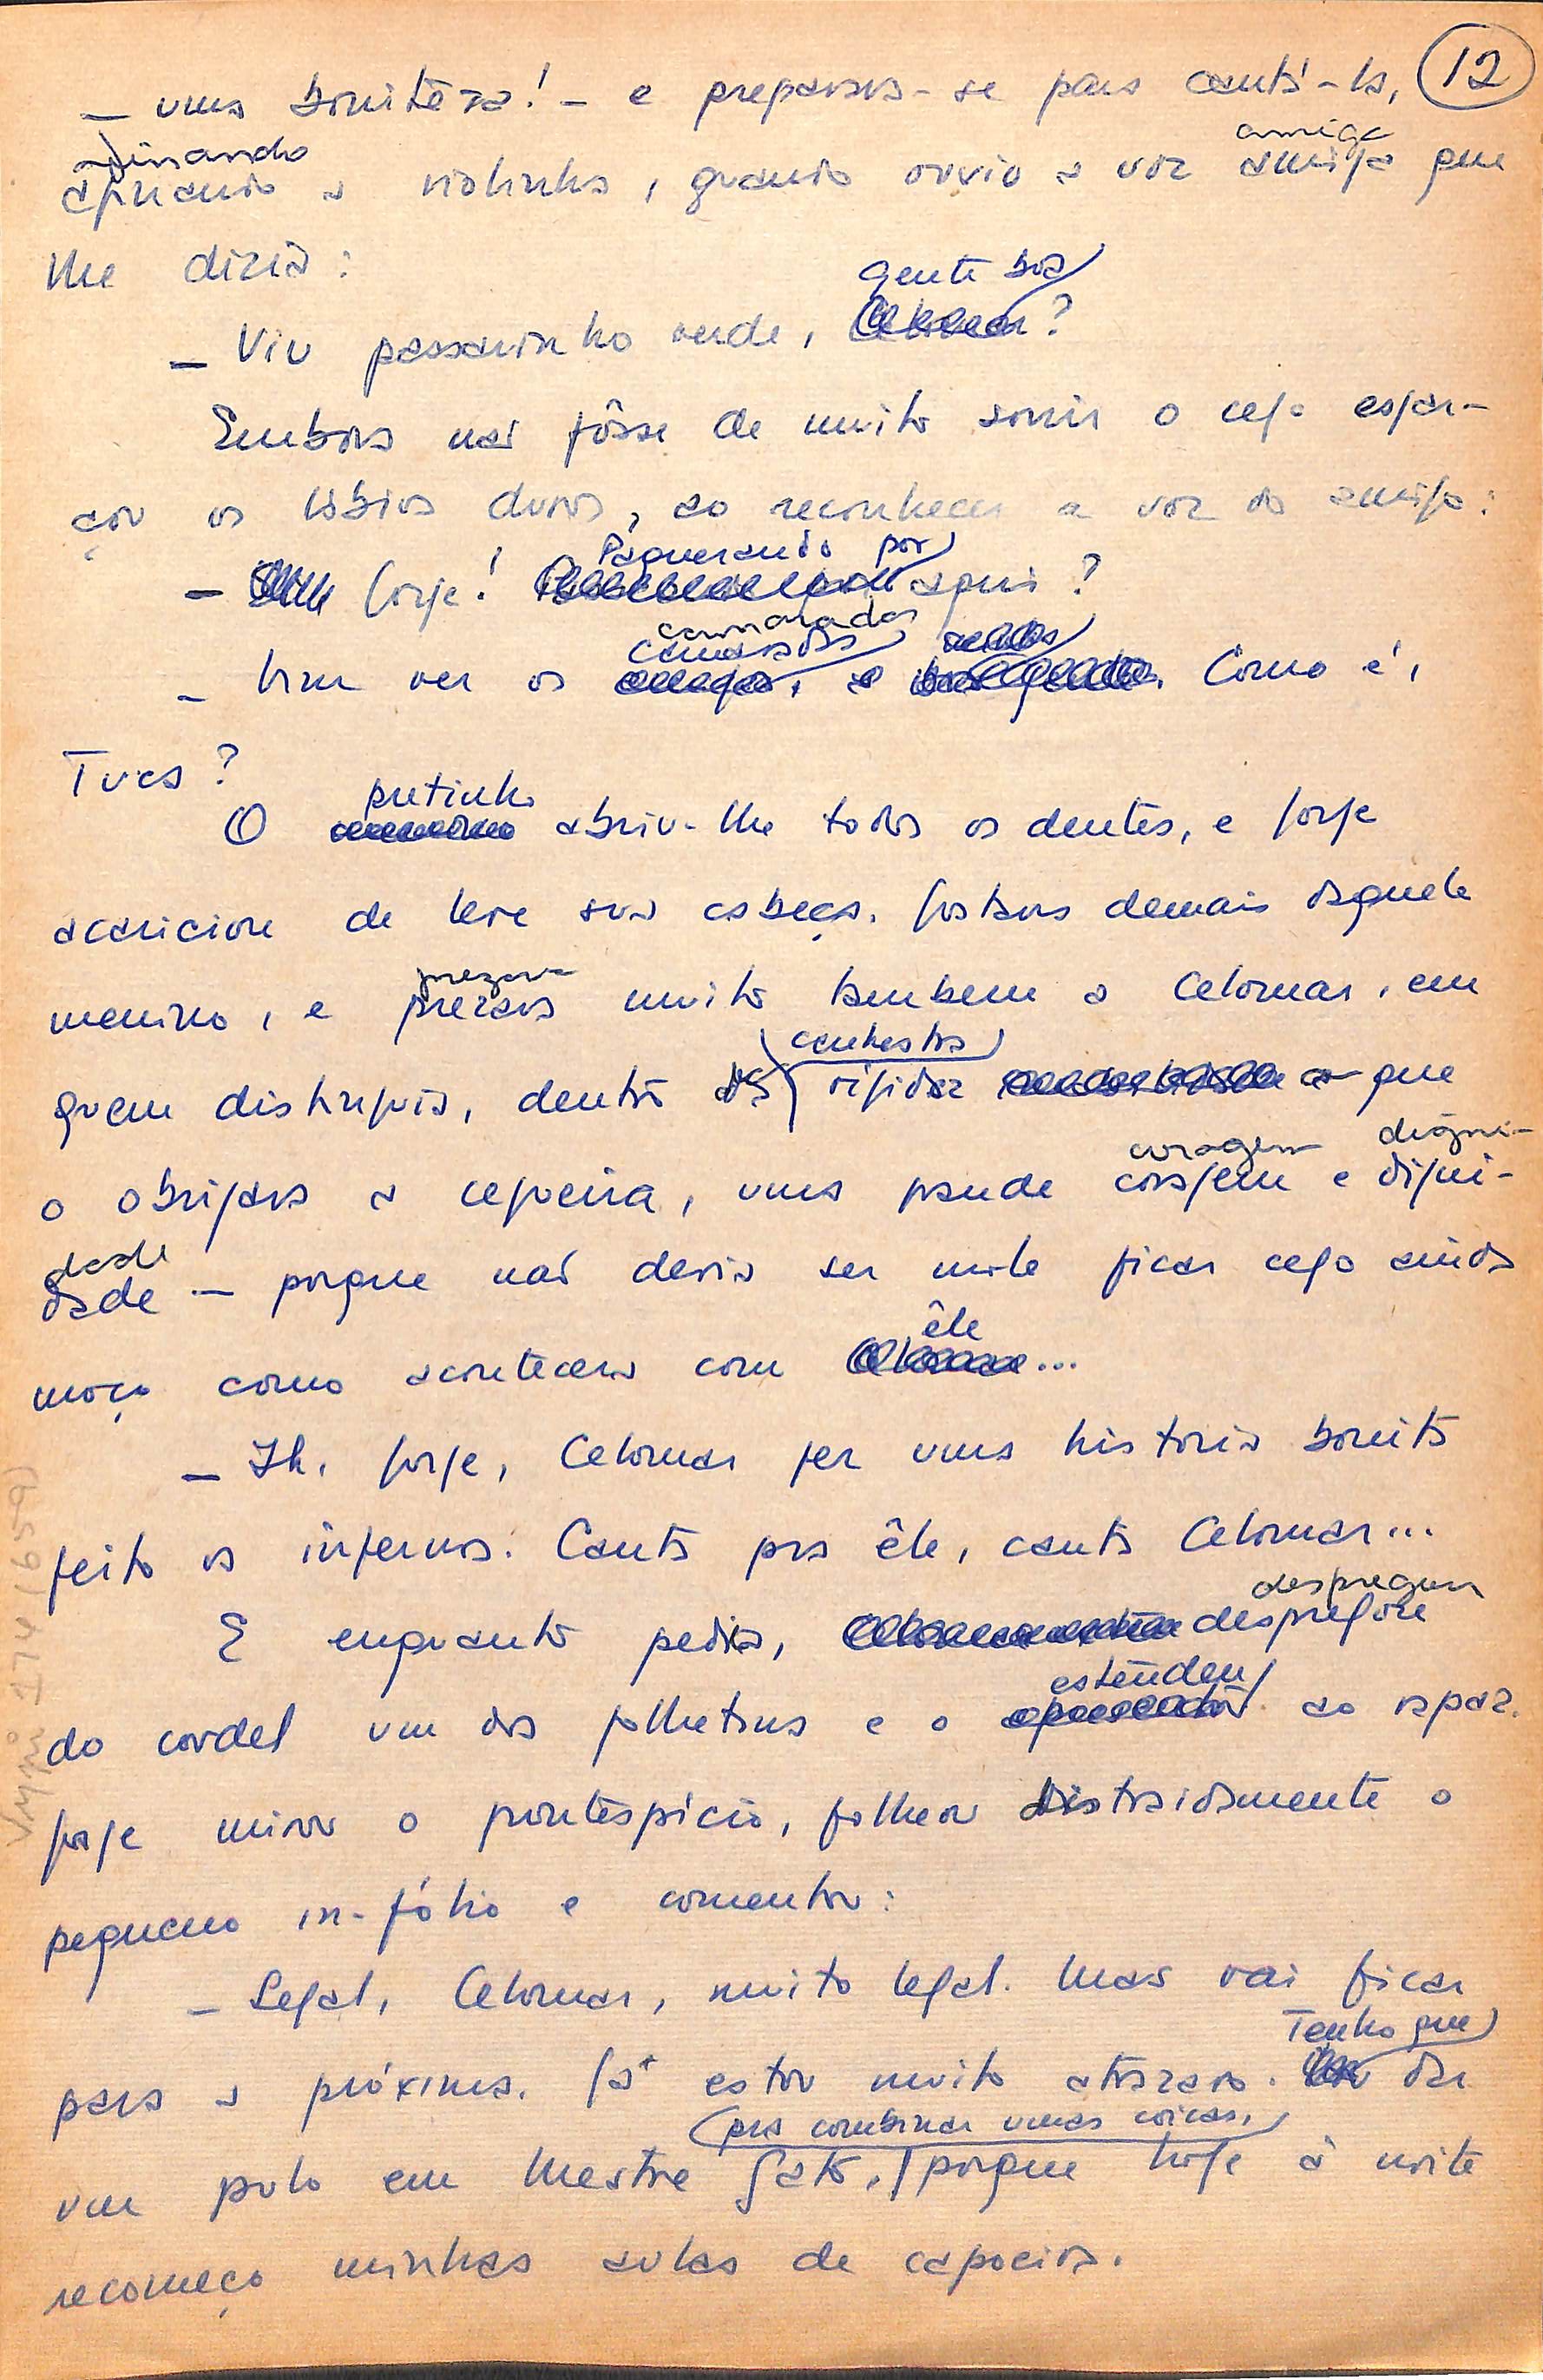 12
— uma bonitêza! — e preparava-se para cantá-la,
afinando amiga
afinando a violinha, quando ouviu a voz amiga que
lhe dizia:
gente boa
— Viu passarinho verde, ?
Embora não fôsse de muito sorrir o cego esgar-
çou os lábios duros, ao reconhecer a voz do amigo:
Paquerando por
— Jorge! aqui?
camaradas
camaradas
— Vim ver os . Como é,
Tuca?
pretinho
O abriu-lhe todos os dentes, e Jorge
acariciou de leve sua cabeça. Gostava demais daquele
prezava
menino, e prezava muito também a Celomar, em
canhestra
quem distinguia, dentro da rigidez a que
coragem digni-
o obrigava a cegueira, uma grande coragem e digni-
dade
dade — porque não devia ser mole ficar cego ainda
êle
moço como acontecera com ...
— Ih, Jorge, Celomar fez uma historia bonita
feito os infernos. Canta pra êle, canta Celomar...
despregou
E enquanto pedia, despregou
estendeu
do cordel um dos folhetins e o ao rapaz.
Jorge mirou o frontespício, folheou distraidamente o
pequeno in-fólio e comentou:
— Legal, Celomar, muito legal. Mas vai ficar
Tenho que
para a próxima. Já estou muito atrazado. dar
pra combinar umas coisas,
um pulo em Mestre Gato, porque hoje à noite
recomeço minhas aulas de capoeira.